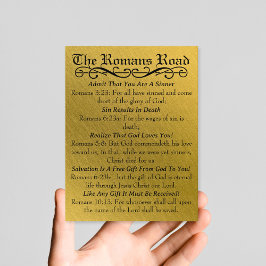 The Romans Road
Admit That You Are A Sinner
Romans 3:23: For all have sinned and come
short of the glory of God;
Sin Results In Death
Romans 6:23a: For the wages of sin is
death;
Realize That God Loves You!
Romans 5:8: But God commendeth his love
toward us, in that, while we were yet sinners,
Christ died for us.
Salvation Is A Free Gift From God To You!
Romans 6:23b: but the gift of God is eternal
life through Jesus Christ our Lord.
Like Any Gift It Must Be Received!
Romans 10:13: For whosoever shall call upon
the name of the Lord shall be saved.